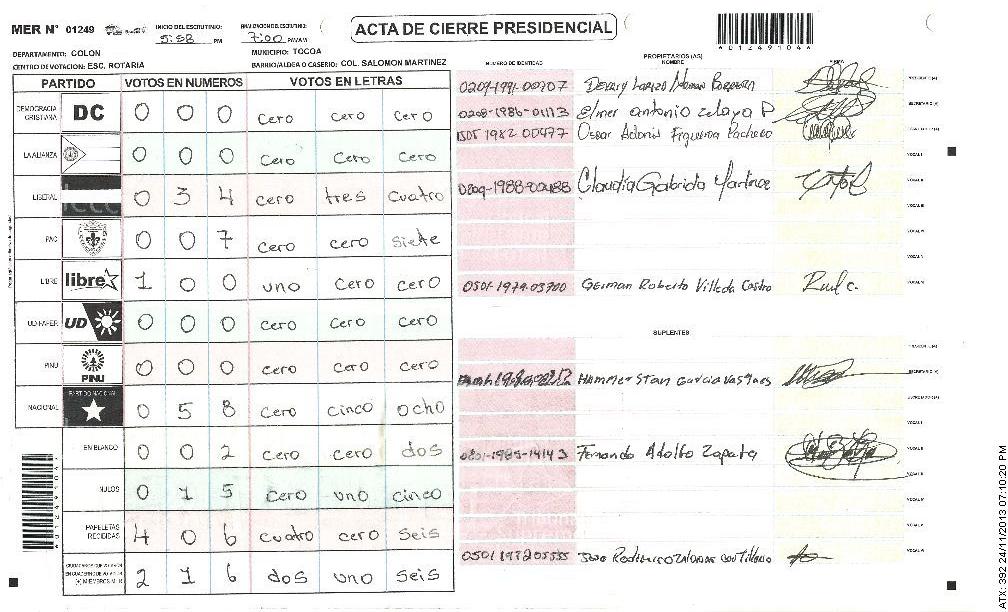 MER N° 01249
INICIO DEL ESCRUTINIO: 5:58 PM
7:00
ACTA DE CIERRE PRESIDENCIAL
DEPARTAMENTO: COLON
MUNICIPIO: TOCOA
CENTRO DE VOTACION: ESC. ROTARIA
BARRIO/ALDEA O CASERIO: COL. SALOMON MARTINEZ
PARTIDO VOTOS EN NUMEROS VOTOS EN LETRAS
NUMERO DE IDENTIDAD
PROPIETARIOS (AS)
NOMBRE
FIRMA
DEMOCRACIA CRISTIANA DC 0 0 0 cero cero cero
LA ALIANZA 0 0 0 cero cero cero
LIBERAL 0 3 4 cero tres cuatro
PAC 0 0 7 cero cero siete
LIBRE libre 1 0 0 uno cero cero
UD-FAPER UD 0 0 0 cero cero cero
PINU PINU 0 0 0 cero cero cero
NACIONAL PARTIDO NACIONAL 0 5 8 cero cinco ocho
EN BLANCO 0 0 2 cero cero dos
NULOS 0 1 5 cero uno cinco
PAPELETAS RECIBIDAS 4 0 6 cuatro cero seis
(+) MIEMBROS MER 2 1 6 dos uno seis
0209-1991-00707
0208-1986-01173 Elmer antonio zelaya P
1505 1982 00477 Oscar Adonis Figueroa Pacheco
0209-1988-00488 Claudia Gabriela Martinez
0501-1974-03700 German Roberto Villeda Castro
SUPLENTES
Hammer Stan Garcia Vasques
0801-1985-14143 Fernando Adolfo Zapata
ATX: 392 24/11/2013 07:10:20 PM